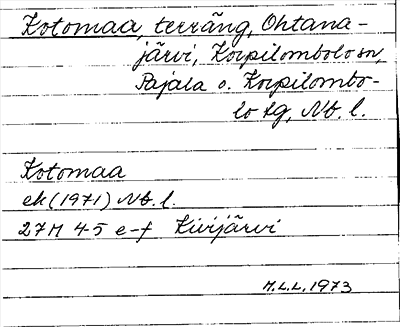 Kotomaa, terräng, Ohtana-
järvi, Korpilombolo sn,
Pajala o. Korpilombo-
lo tg, Nb. l.
Kotomaa
ek (1971) Nb. l.
27M 4-5 e-f Kivijärvi
M.L.L, 1973